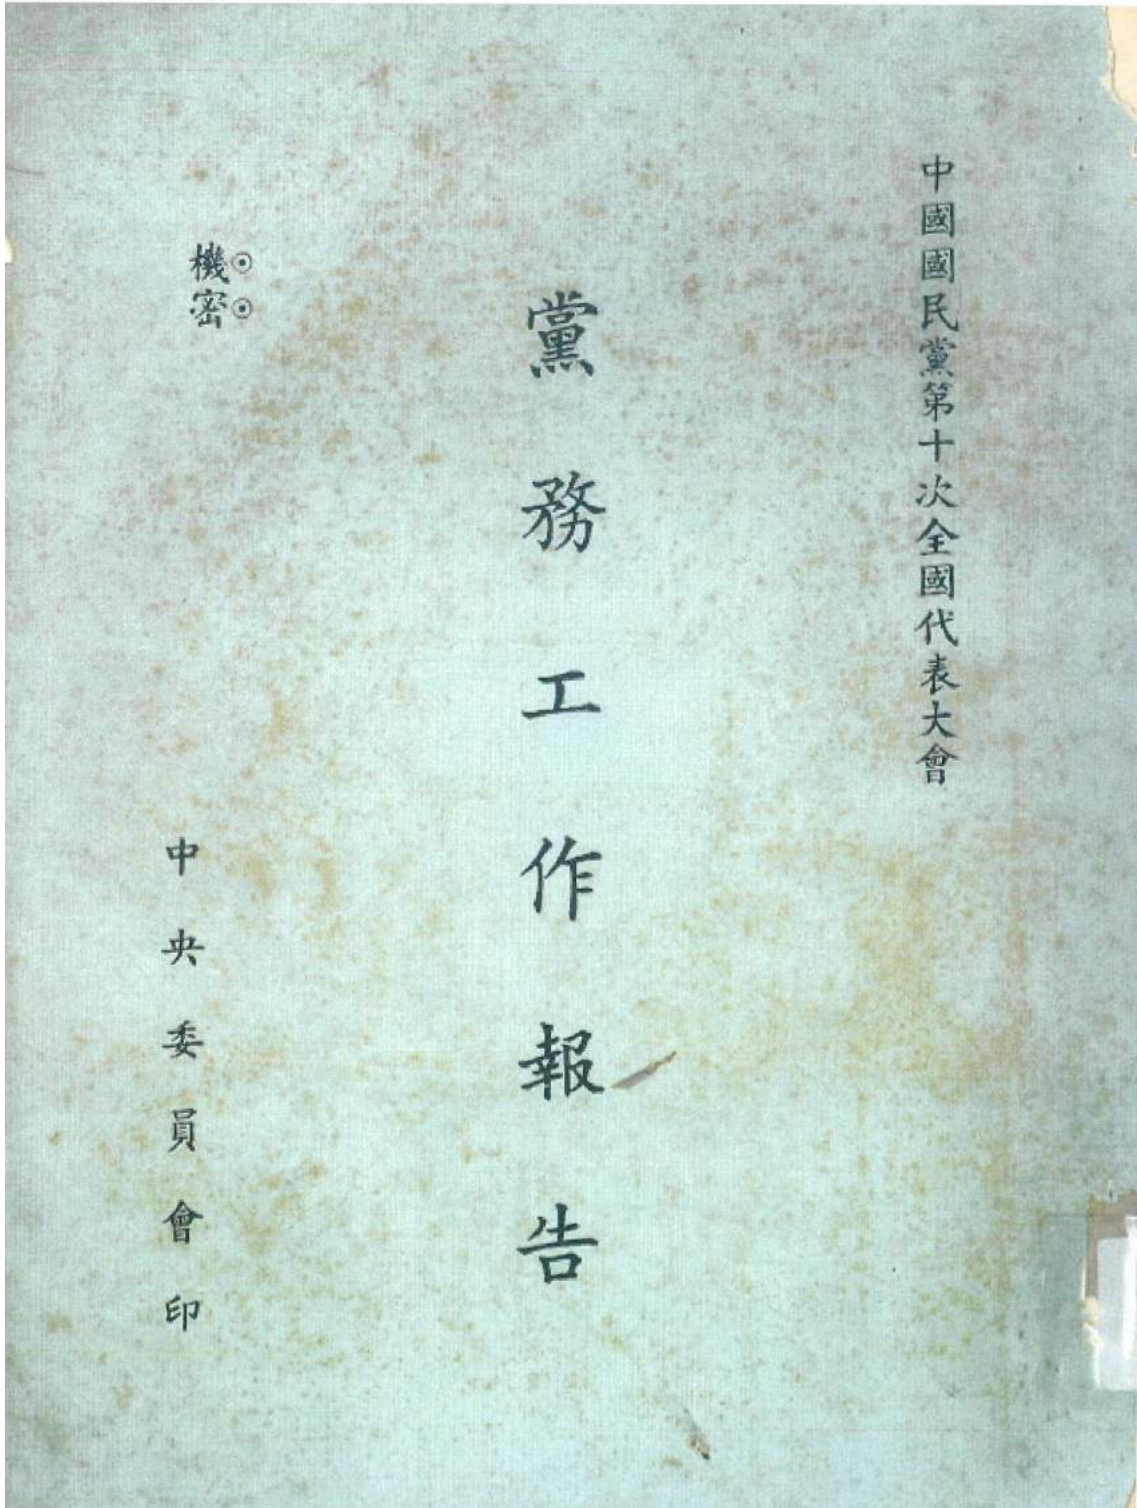 中國國民黨第十次全國代表大會
黨務工作報告
機密
中央委員會印